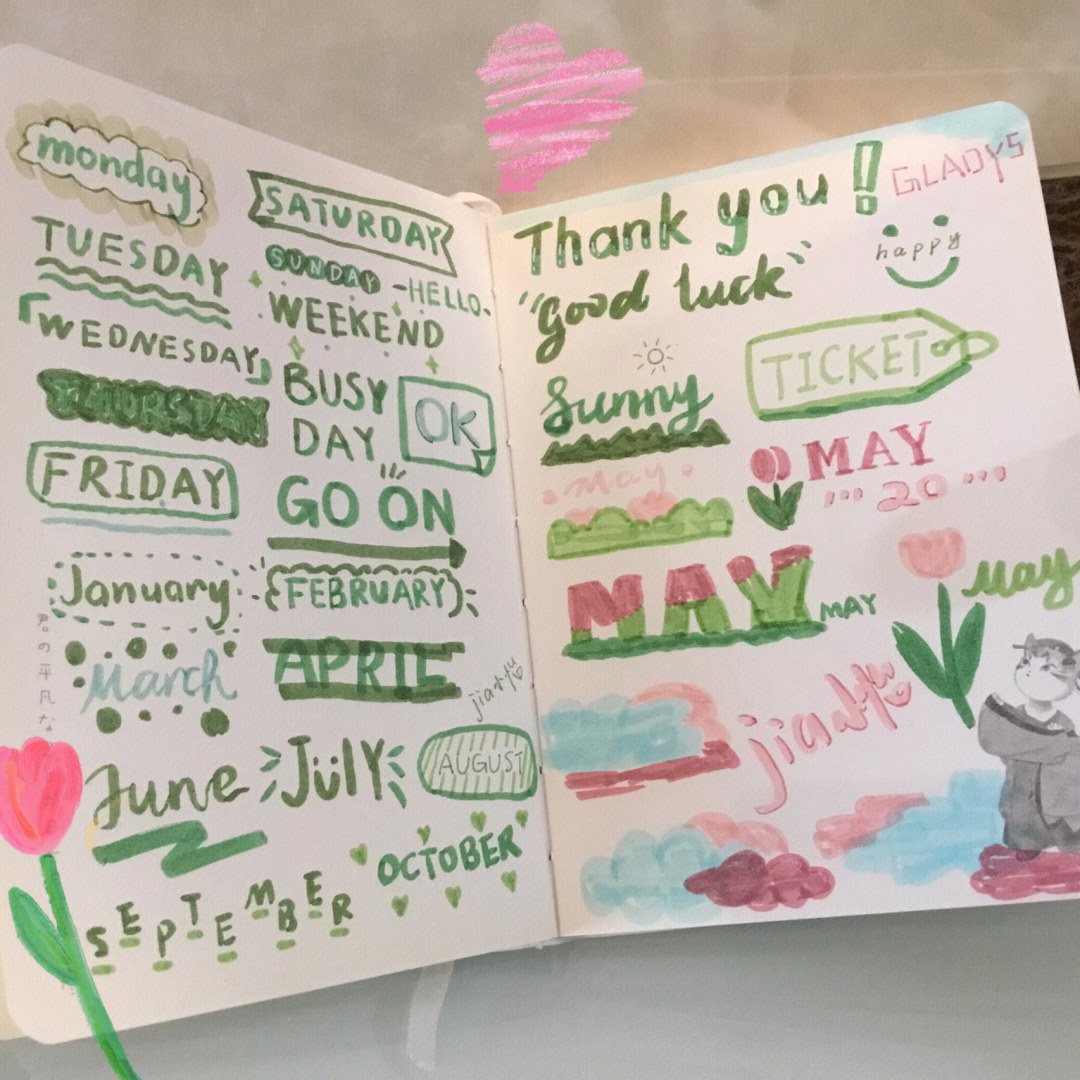 monday
TUESDAY
「WEDNESDAY」
THURSDAY
FRIDAY
SATURDAY
SUNDAY
-HELLO-
WEEKEND
BUSY
DAY
OK
GO ON
January
FEBRUARY
March
APRIL
君の平凡な
June
JÜlY
AUGUST
SEPTEMBER
OCTOBER
Thank you!
GLADYS
happy
"Good luck"
Sunny
TICKET
May
MAY
20
MAY
MAY
May